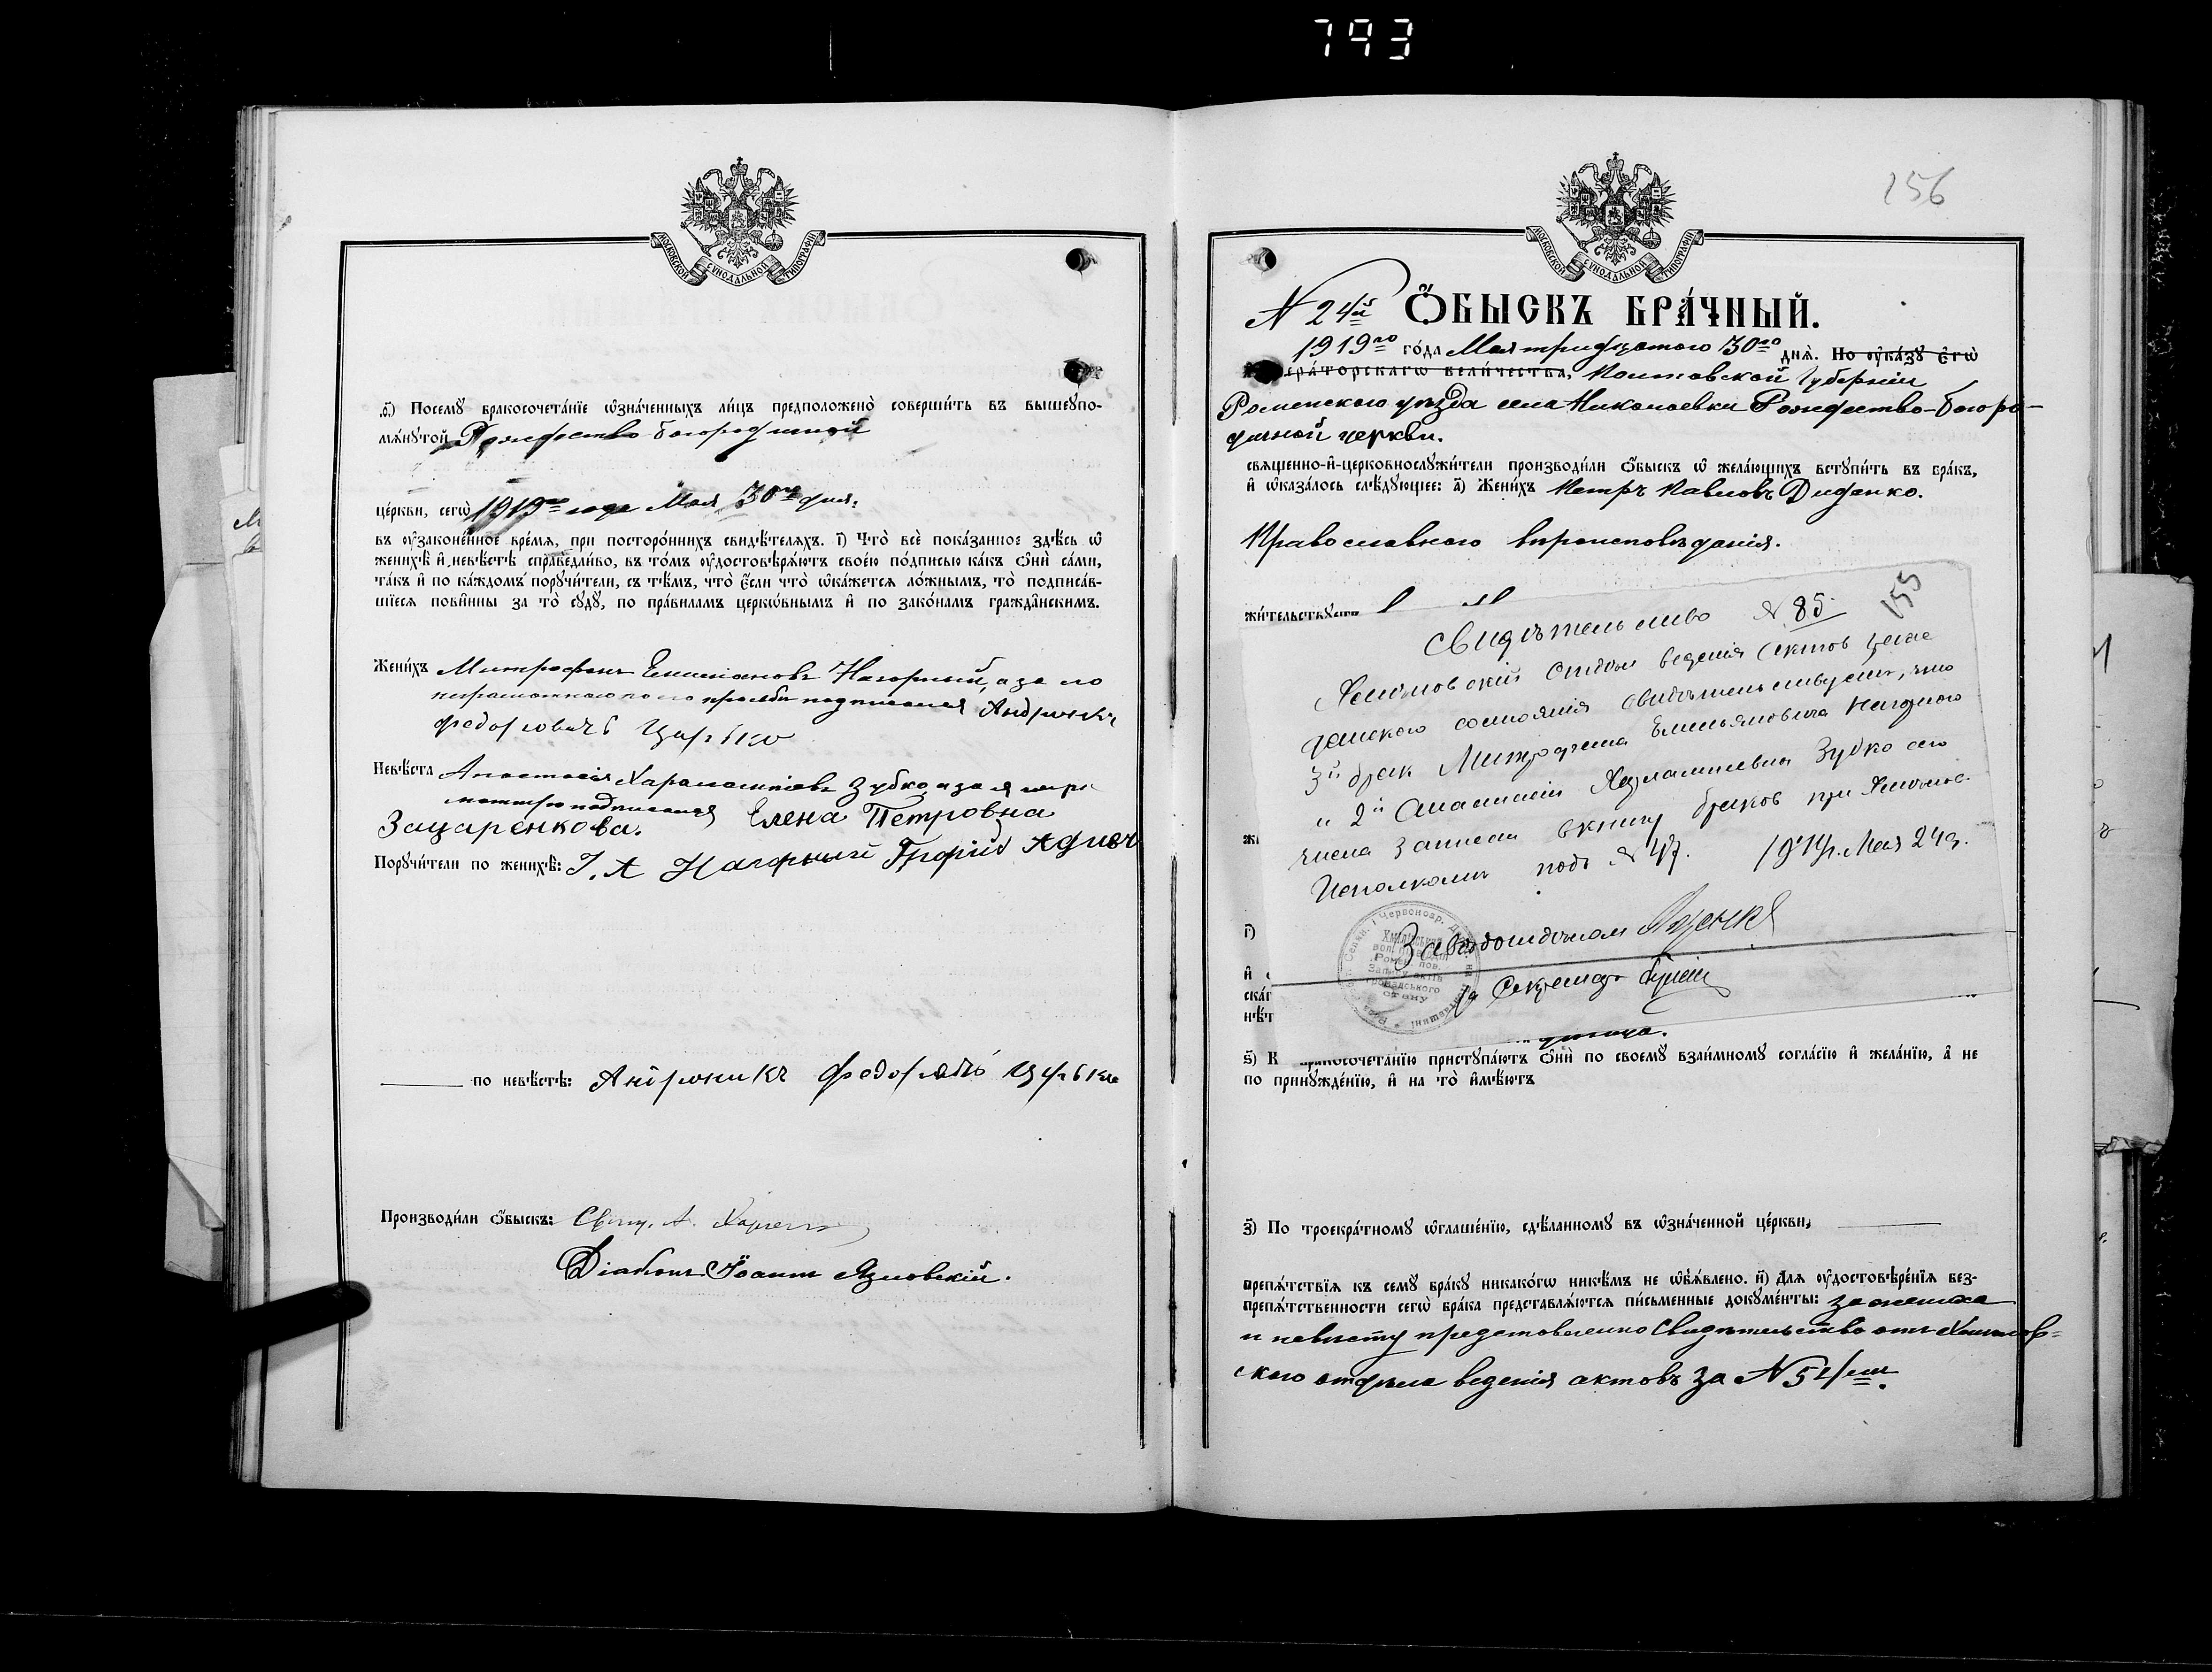 793
МОСКОВСКОЙ СУНОДАЛЬНОЙ ТИПОГРАФІИ
ѳ҃) Посемꙋ̀ бракосочета́нїе ѡ҆зна́ченныхъ ли́цъ предположено̀ соверши́ть въ вышеꙋпо-
мѧ́нꙋтой Рождество-богородичной
це́ркви, сегѡ̀ 1919го года Мая 30го дня.
въ ᲂу҆зако́ненное вре́мѧ, при посторо́ннихъ свидѣ́телѧхъ. і҃) Что̀ всѐ пока́занное здѣ́сь ѡ҆
женихѣ̀ и҆ невѣ́стѣ справедли́во, въ то́мъ ᲂу҆достовѣрѧ́ютъ свое́ю по́дписью ка́къ ѻ҆нѝ са́ми,
та́къ и҆ по ка́ждомъ порꙋчи́тели, съ тѣ́мъ, что̀ є҆́сли что̀ ѡ҆ка́жетсѧ ло́жнымъ, то̀ подписа́в-
шїесѧ пови́нны за то̀ сꙋдꙋ̀, по пра́виламъ церкѡ́внымъ и҆ по зако́намъ гражда́нскимъ.
Жени́хъ Митрофанъ Емельяновъ Нагорный, а за его
неграмотного по его просьбе подписался Андроникъ
федоровичъ Царько
Невѣ́ста Анастасія Харалампіева Зубко, а за я негра
мотную подписалася Елена Петровна
Зацаренкова.
Порꙋчи́тели по женихѣ̀: Г. А Нагорный
по невѣ́стѣ: Андроникъ федоровъ Царько
Производи́ли ѻ҆́быскъ: Свящ. А.
Діаконъ Іоаннъ Язловскій.
156
МОСКОВСКОЙ СУНОДАЛЬНОЙ ТИПОГРАФІИ
N 24й Ѻ҆́БЫСКЪ БРА́ЧНЫЙ.
1919го го́да Мая тридцатого 30го днѧ̀. По ᲂу҆ка́зꙋ є҆гѡ̀
ера́торскагѡ вели́чества, Полтавской Губерніи
Роменского уѣзда села Николаевки Рождество-богоро-
дичной церкви.
свѧще́нно-и҆-церковнослꙋжи́тели производи́ли ѻ҆́быскъ ѡ҆ жела́ющихъ встꙋпи́ть въ бра́къ,
и҆ ѡ҆каза́лось слѣ́дꙋющее: а҃) Жени́хъ Петръ Павловъ Диденко.
Православного вѣроисповѣданія.
жи́тельствꙋетъ
155
Свидѣтельство N 85
отдѣл ведения Актов граж
данского состояния свидѣтельствуетъ, что
3й брак Митрофана Емельяновича Нагорного
и 2й Анастасіи Харлампиевна Зубко сего
числа Записан в книгу браков при
Исполкоме подъ N 47. 1919г. Мая 24д.
Завѣдотдѣлом
За Секретар
Хмелівський
Ромен. пов.
Запису актів
громадського
стану
г҃)
ѕ҃) К бракосочета́нїю пристꙋпа́ютъ ѻ҆нѝ по своемꙋ̀ взаи́мномꙋ согла́сїю и҆ жела́нїю, а҆ не
по принꙋжде́нїю, и҆ на то̀ и҆мѣ́ютъ
з҃) По троекра́тномꙋ ѡ҆глаше́нїю, сдѣ́ланномꙋ въ ѡ҆зна́ченной це́ркви,
препѧ́тствїѧ къ семꙋ̀ бра́кꙋ никако́гѡ никѣ́мъ не ѡ҆б̾ѧ́влено. и҃) Длѧ ᲂу҆достовѣре́нїѧ без-
препѧ́тственности сегѡ̀ бра́ка представлѧ́ютсѧ пи́сьменные докꙋме́нты: за жениха
и невѣсту представленно Свидѣтельство отъ Хмелов-
ского отдѣла веденія актовъ за N 54/мъ.